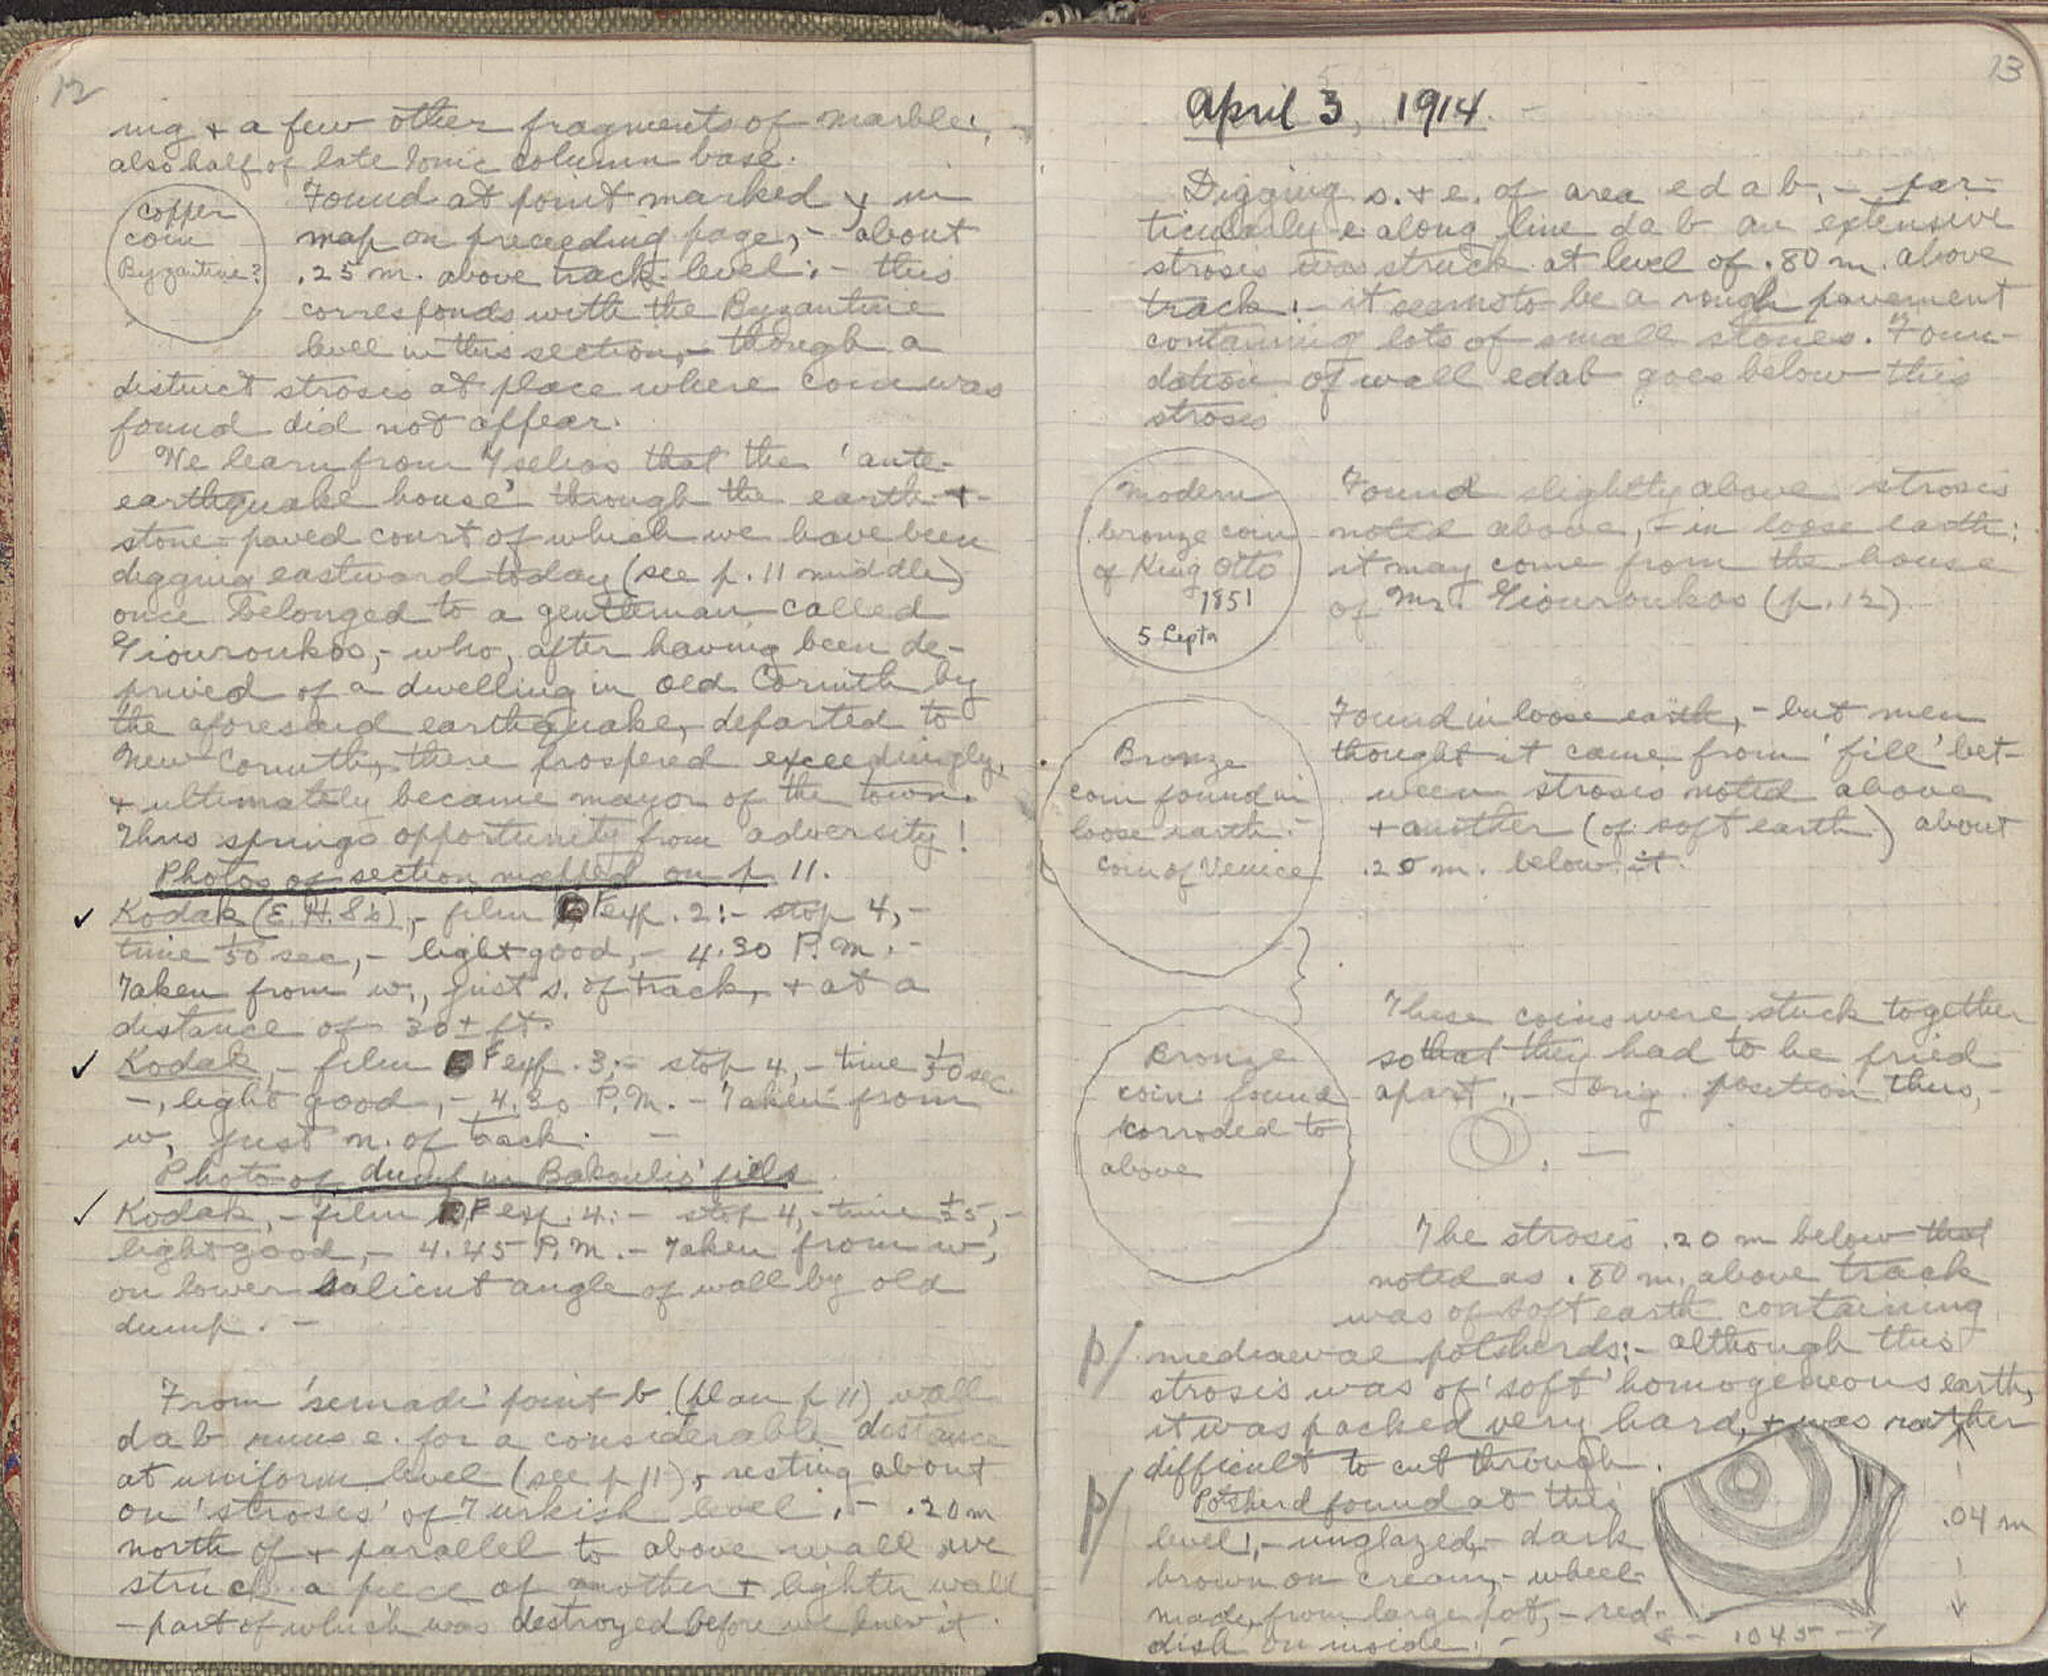 12
ing + a few other fragments of marble:,
also half of late Ionic column base.
Copper
coin
Byzantine?
Found at point marked x in
map on preceeding page,- about
.25 m. above track level:- this
corresponds with the Byzantine
level in this section,- though a
distinct strosis at place where coin was
found did not appear.
We learn from Tselios that the 'ante-
earthquake house' through the earth +
stone-paved court of which we have been
digging eastward today (see p. 11 middle)
once belonged to a gentleman called
Giouroukos,- who, after having been de-
prived of a dwelling in Old Corinth by
the aforesaid earthquake, departed to
New Corinth, there prospered exceedingly,
+ ultimately became mayor of the town.
Thus springs opportunity from adversity!
Photos of section mapped on p 11.
✓ Kodak (E.H.S's),- film F exp. 2:- stop 4,-
time 1/50 sec,- light good,- 4.30 P.M.-
Taken from w., just s. of track, + at a
distance of 30± ft.
✓ Kodak,- film F exp. 3;- stop 4,- time 1/50 sec.
-, light good,- 4.30 P.M. - Taken from
w, just n. of track. -
Photo of dump in Bakoulis' field
✓ Kodak,- film F exp. 4:- stop 4,- time 1/25,-
light good,- 4.45 P.M. - Taken from w,
on lower salient angle of wall by old
dump. -
From 'semadi' point b (plan p 11) wall
dab runs e. for a considerable distance
at uniform level (see p 11), resting about
on 'strosis' of Turkish level.- .20 m
north of + parallel to above wall we
struck a piece of another + lighter wall
- part of which was destroyed before we knew it.
13
April 3, 1914. -
5
Digging s. + e. of area e d a b,- par-
ticularly e. along line d a b an extensive
strosis was struck at level of .80 m. above
track:- it seems to be a rough pavement
containing lots of small stones. Foun-
dation of wall edab goes below this
strosis
Modern
bronze coin
of King Otto
1851
5 Lepta
Found slightly above strosis
noted above,- in loose earth:
it may come from the house
of Mr. Giouroukos (p. 12)
Bronze
coin found in
loose earth:-
coin of Venice
Found in loose earth,- but men
thought it came from 'fill' bet-
ween strosis noted above
+ another (of soft earth) about
.20 m. below it.
Bronze
coin: found
corroded to
above
These coins were stuck together
so that they had to be pried
apart,- orig. position thus,-
The strosis .20 m below that
noted as .80 m. above track
was of soft earth containing
p/ mediaeval potsherds:- although this
strosis was of 'soft' homogeneous earth,
it was packed very hard, + was rather
difficult to cut through.
p/ Potsherd found at this
level:,- unglazed,- dark
brown on cream,- wheel-
made, from large pot,- red-
dish on inside. -
.04 m
.045